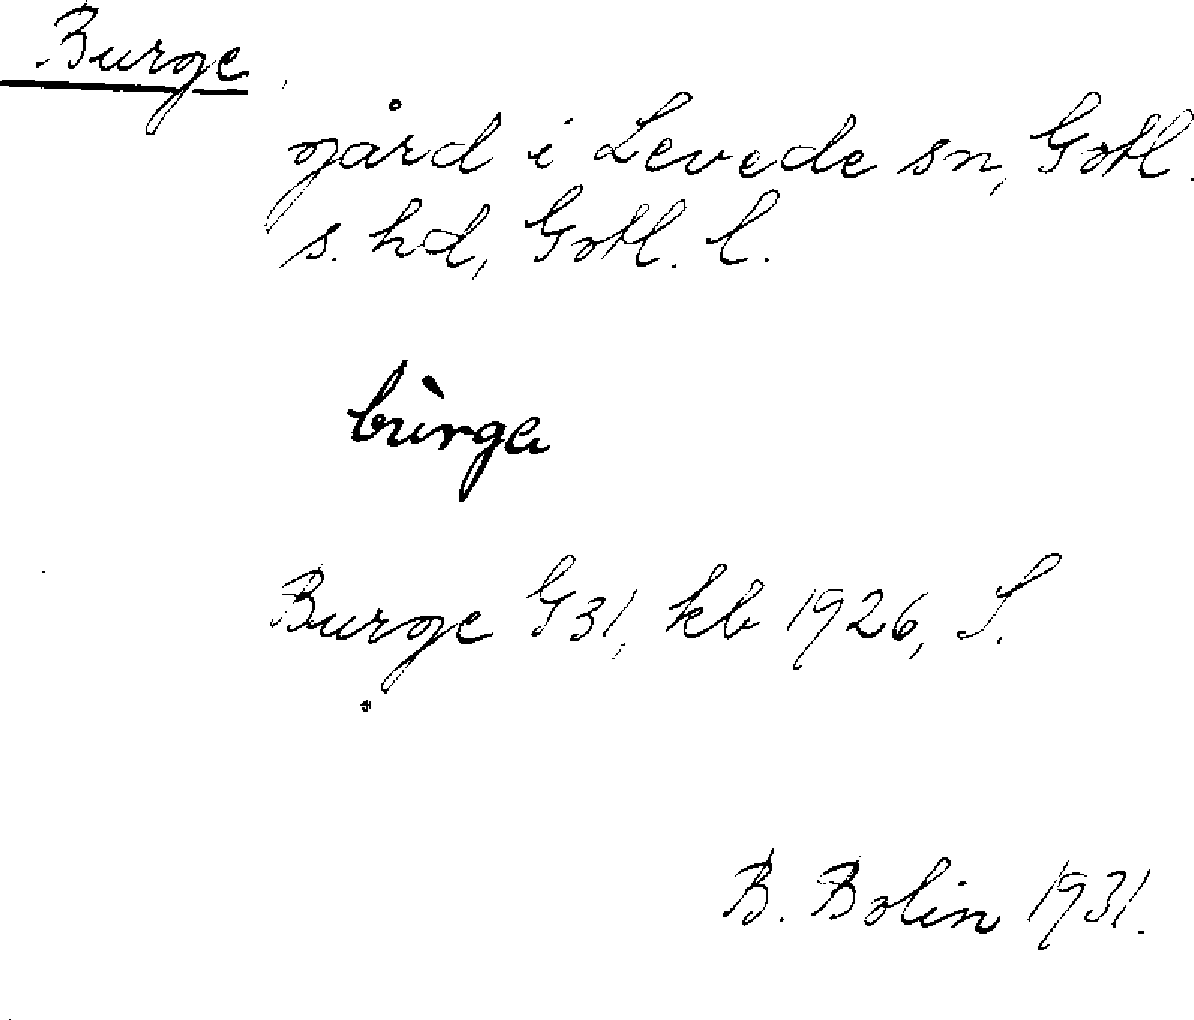 Burge
gård i Levede sn, Gotl.
s. hd, Gotl. l.
bùrge
Burge G 31, kb 1926, S.
B. Bolin 1931.